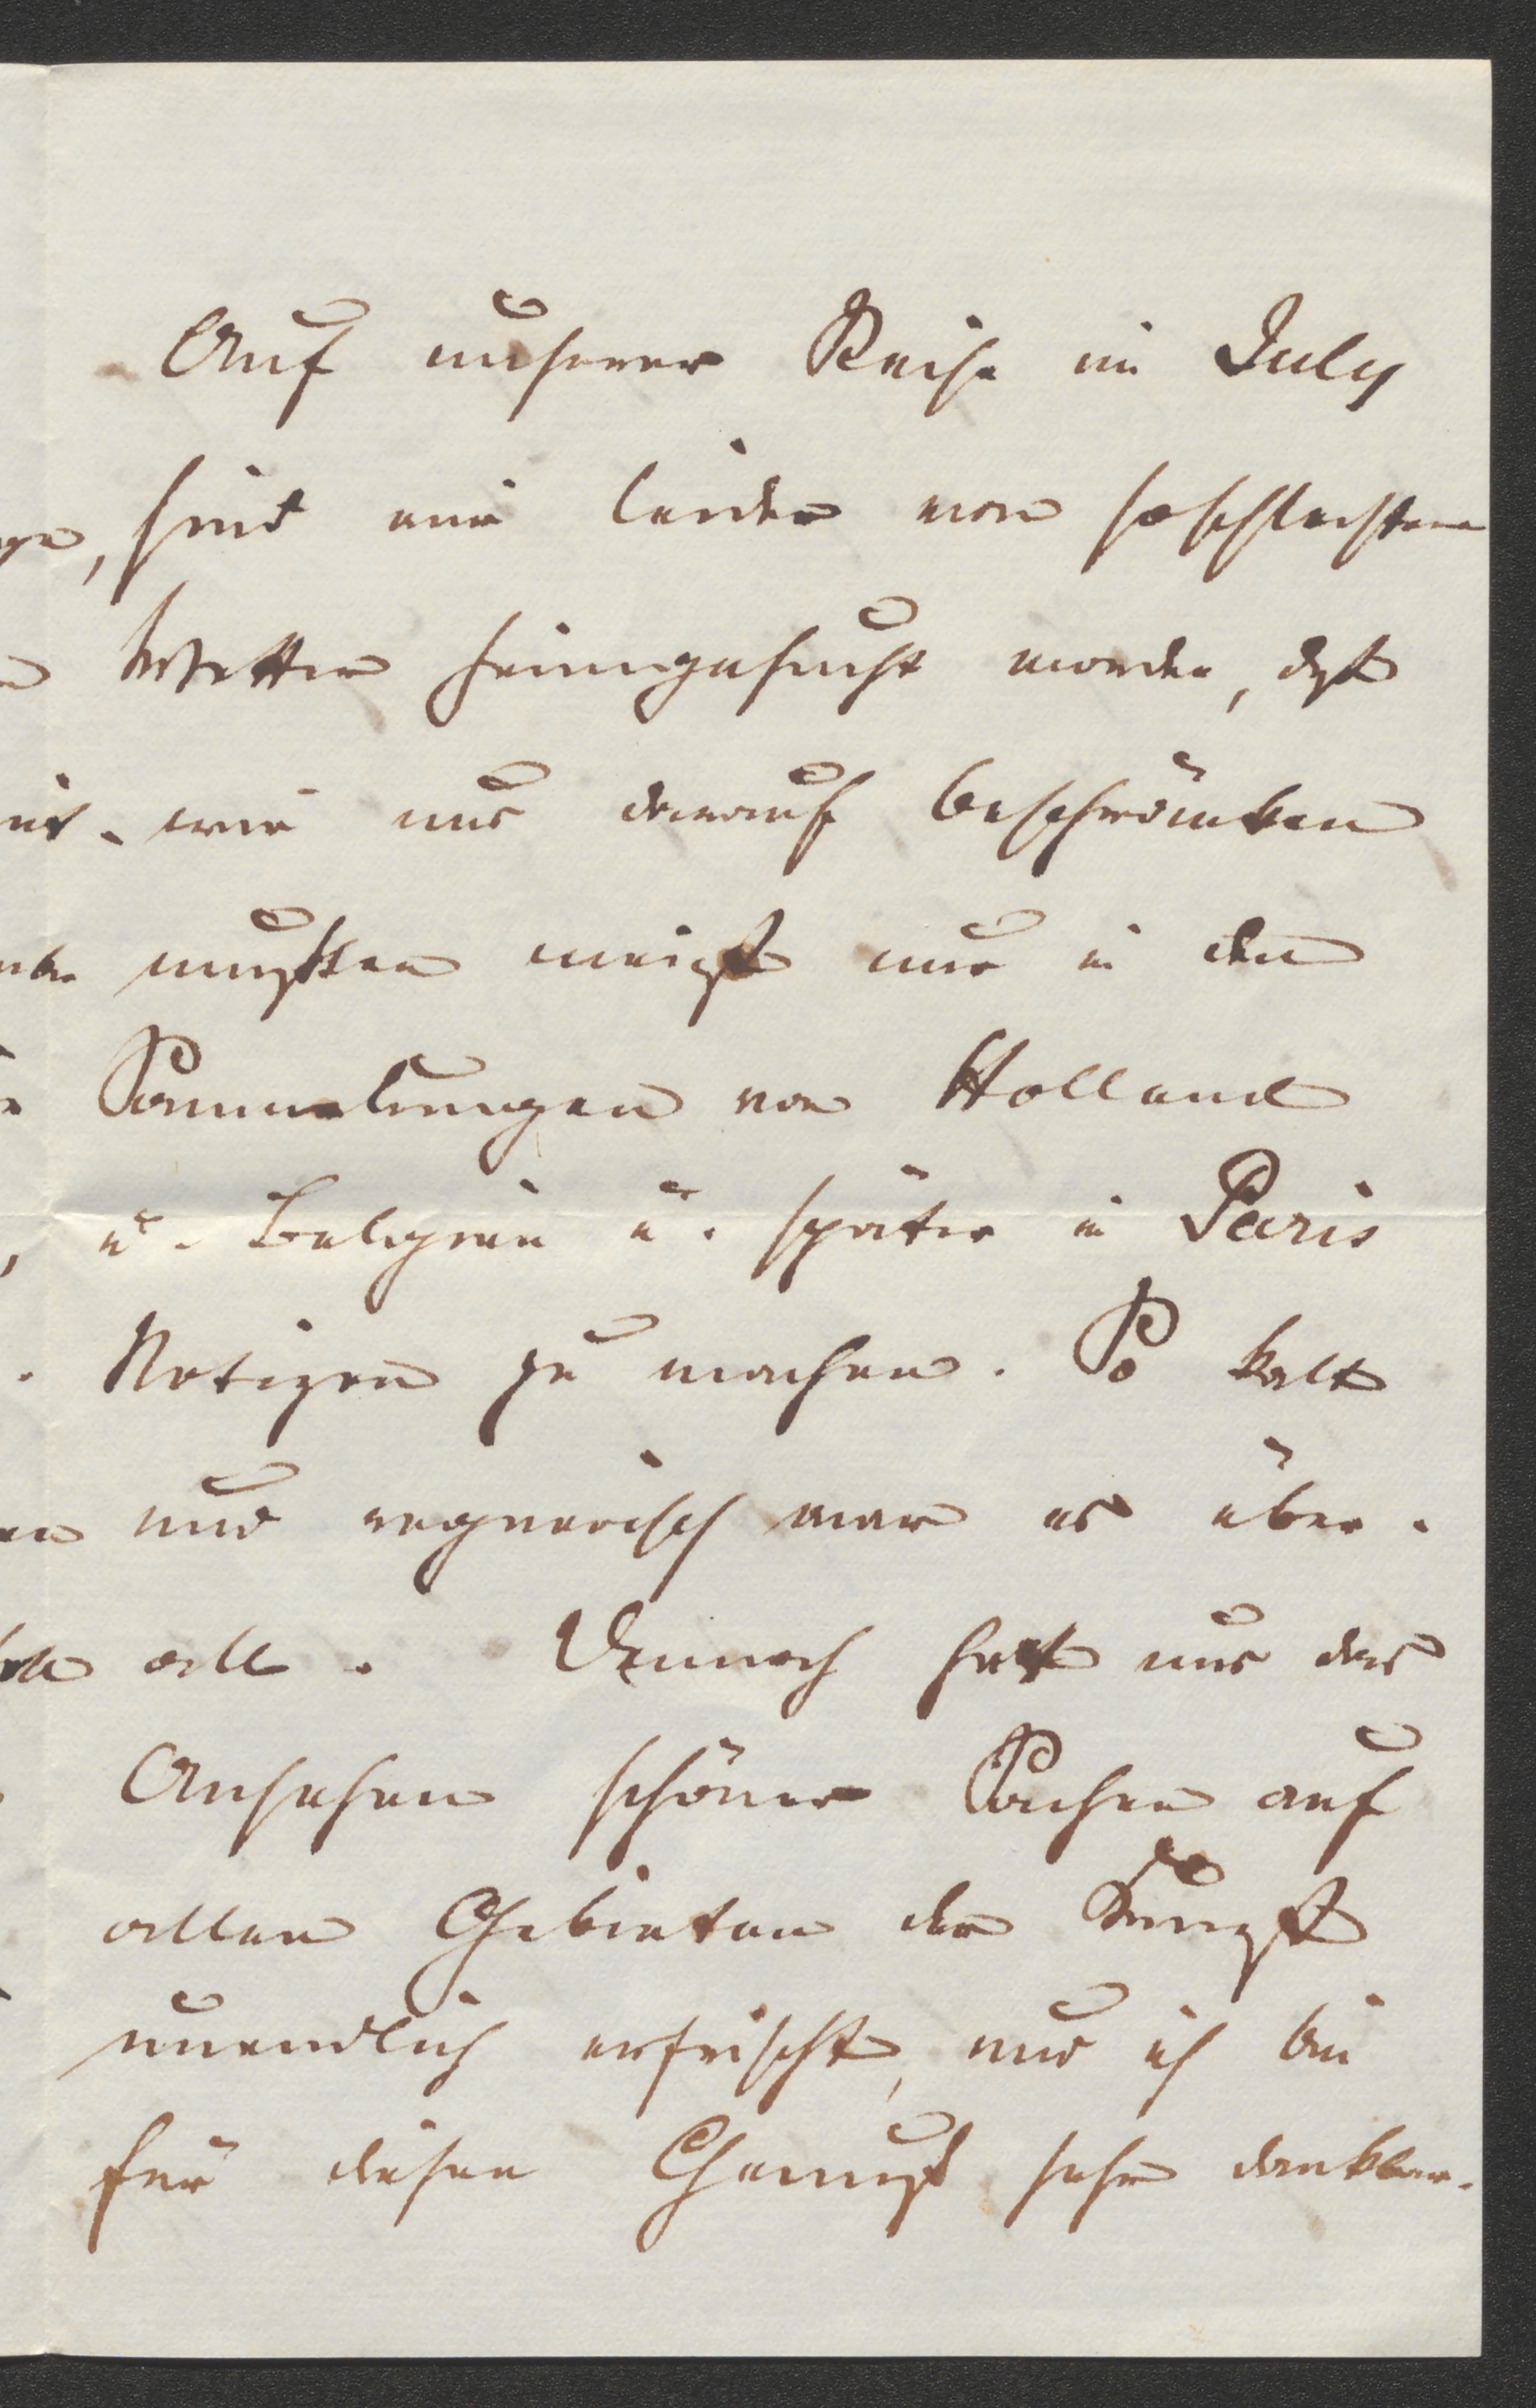 Auf unserer Reise im July
sind wir leider von so schlechtem
Wetter heimgesucht worden, daß
wir uns darauf beschränken
mußten meist nur in den
Sammlungen von Holland
u. Belgien u. später in Paris
Notizen zu machen. So kalt
und regnerisch war es über-
all. Dennoch hat uns das
Ansehen schöner Sachen auf
allen Gebieten der Kunst
unendlich erfrischt, und ich bin
für diesen Genuß sehr dankbar.